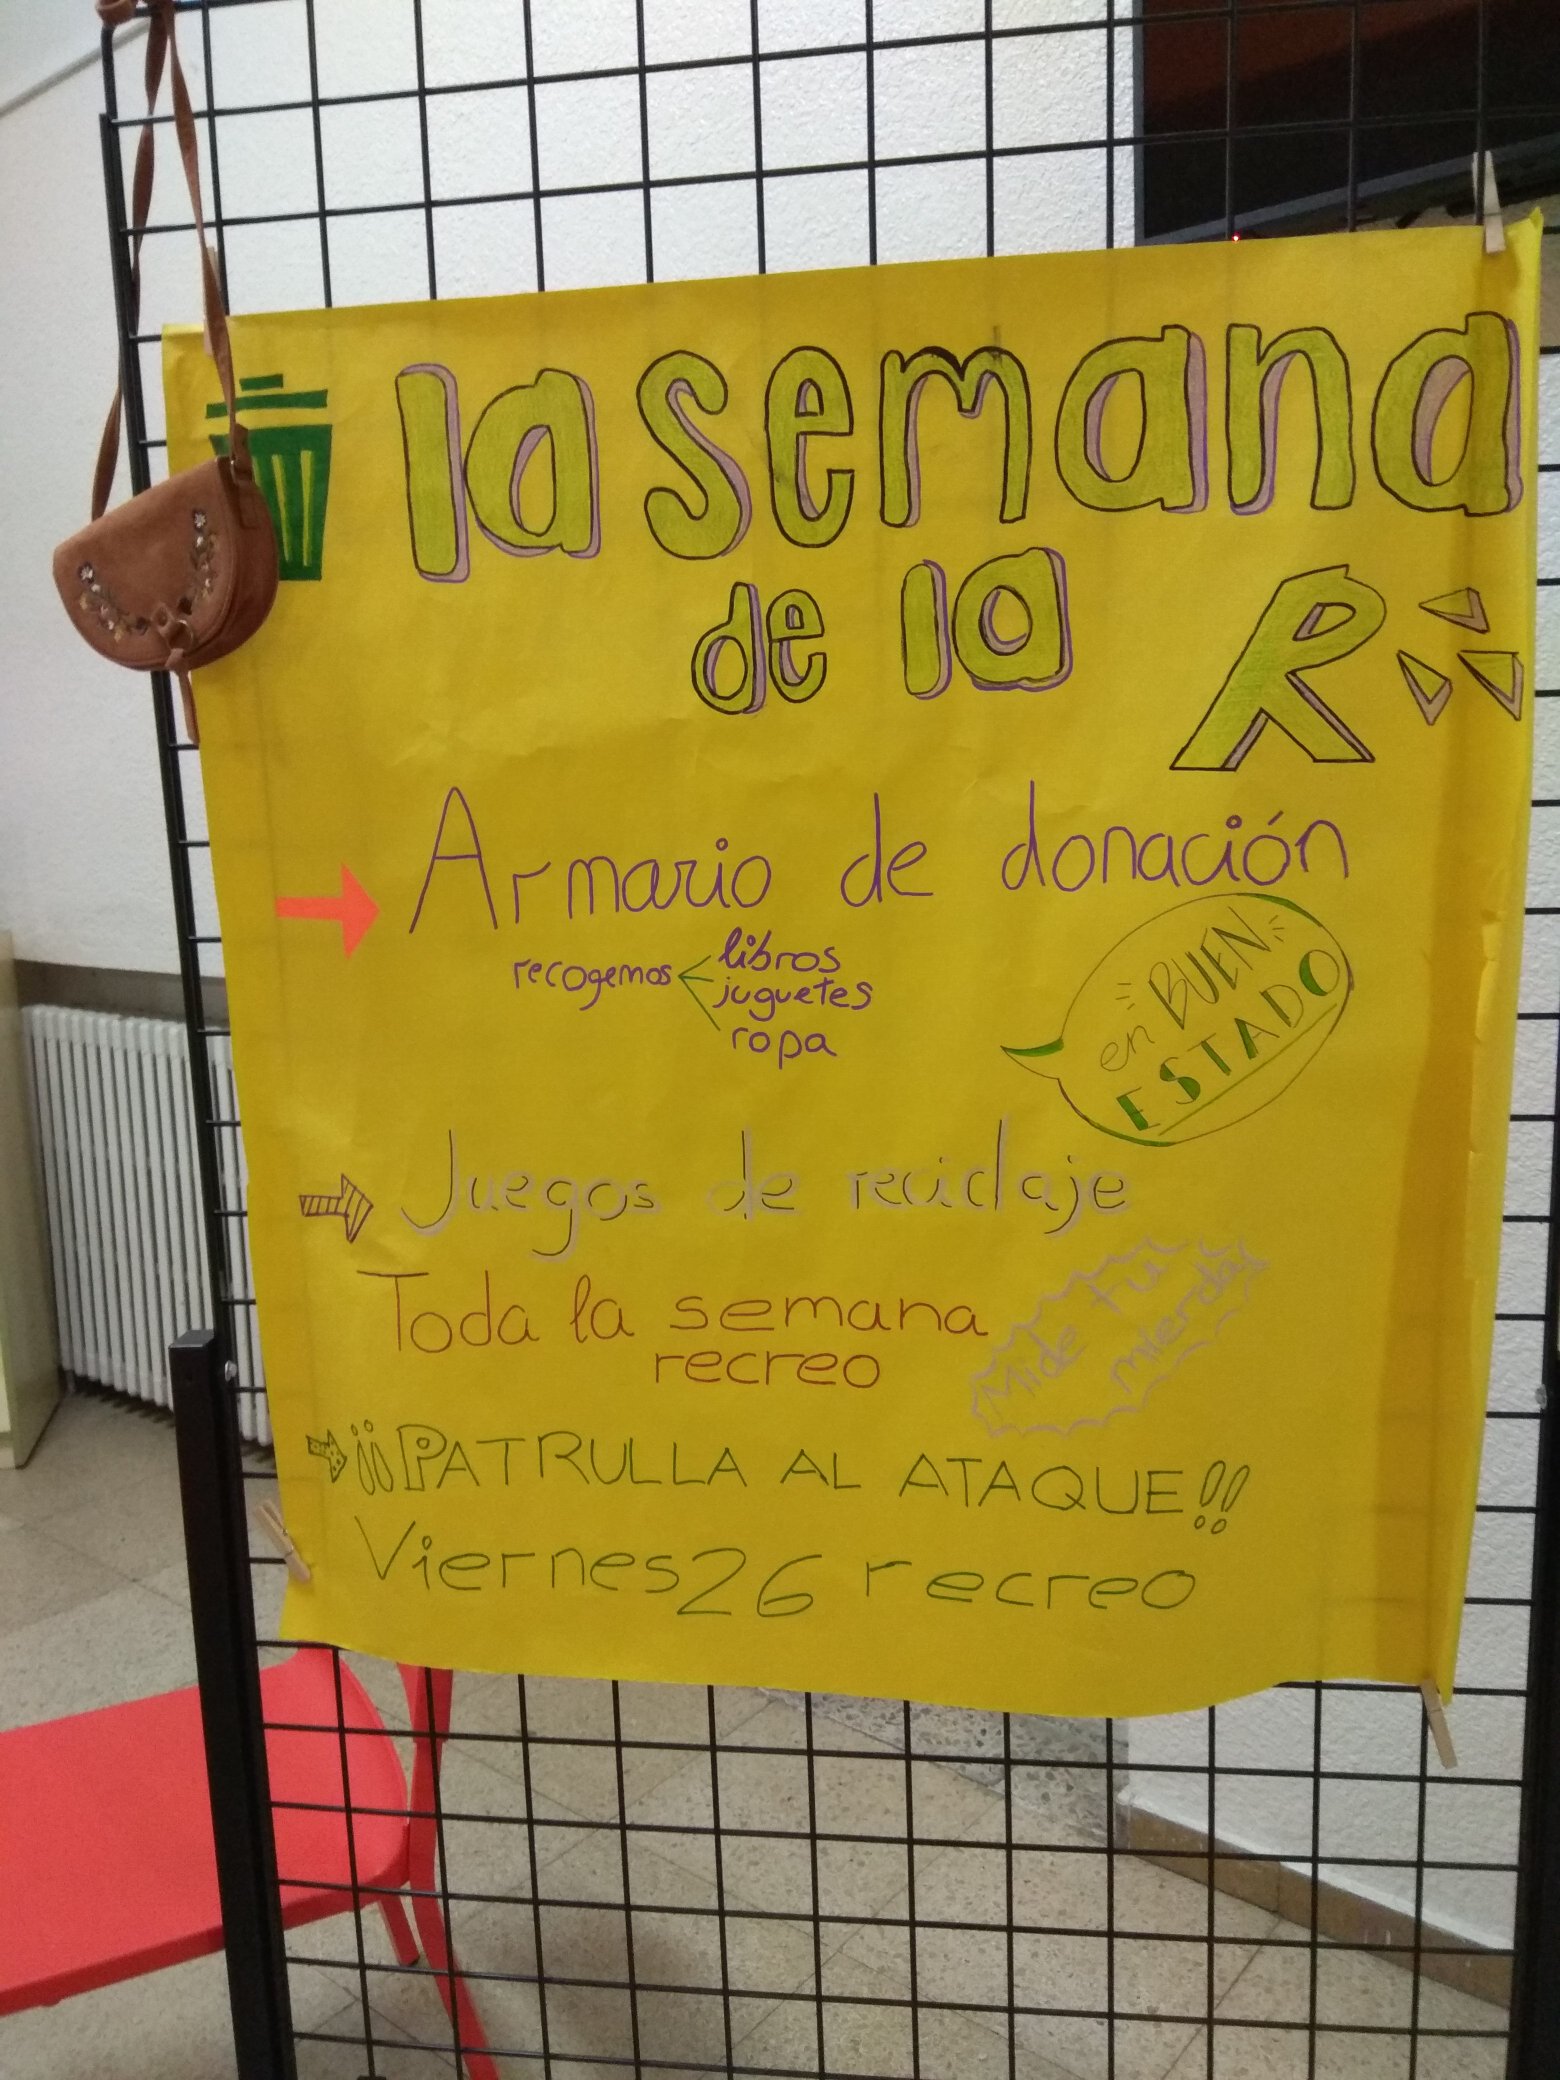 la semana
de la R
Armario de donación
recogemos libros
juguetes
ropa
en BUEN
ESTADO
Juegos de reciclaje
Toda la semana
recreo
Mide tu
mierda
¡¡PATRULLA AL ATAQUE!!
Viernes 26 recreo